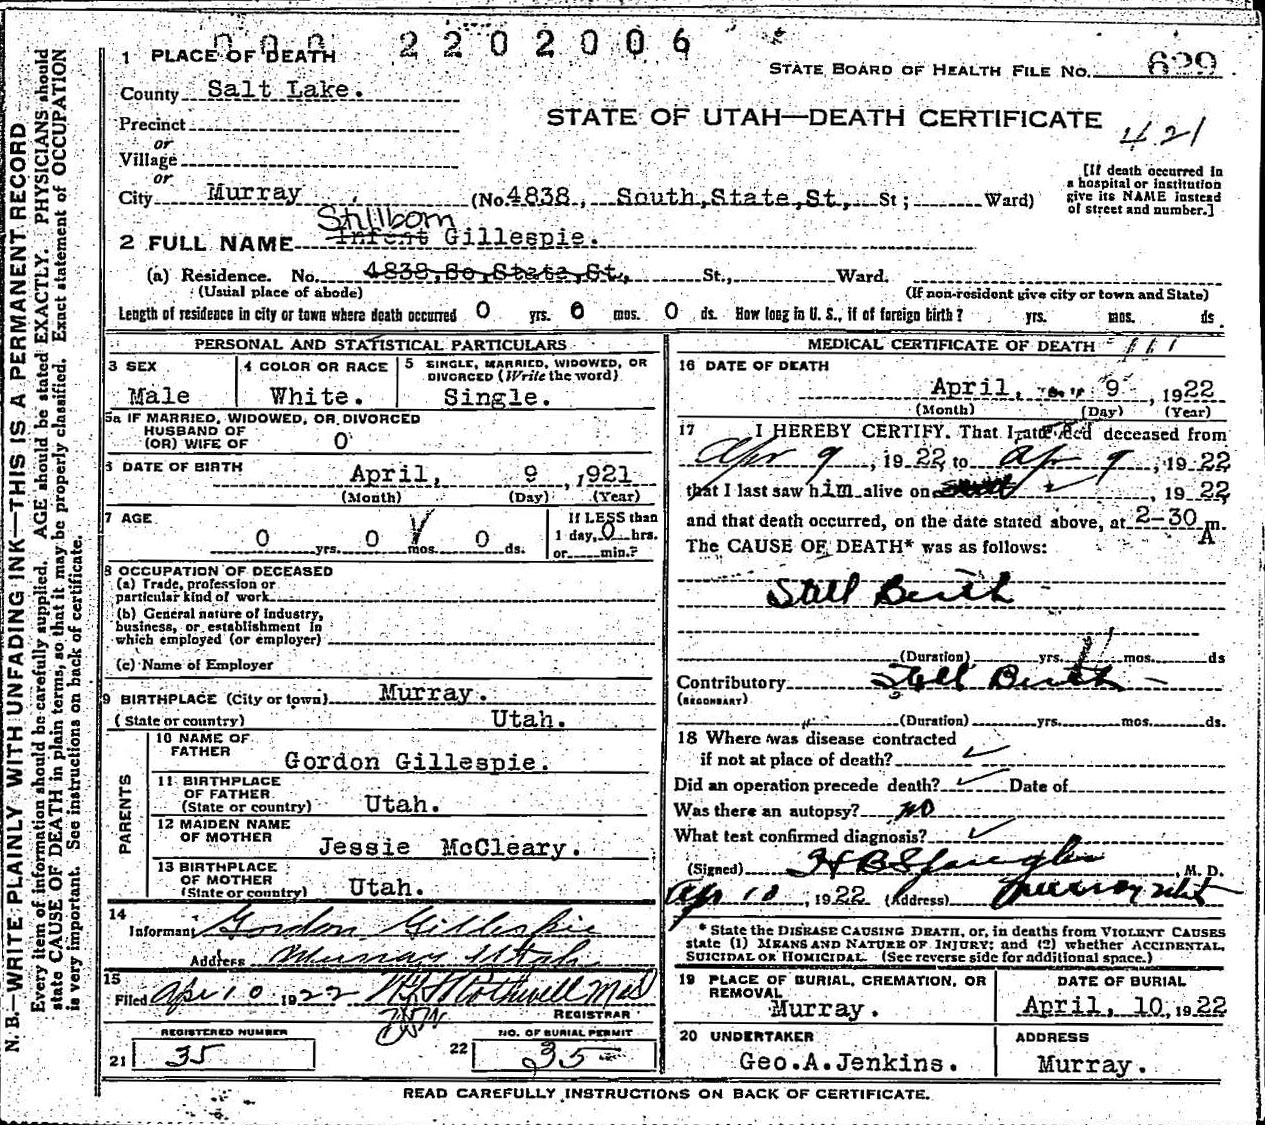 0 0 0 2 2 0 2 0 0 6
1 PLACE OF DEATH
STATE BOARD OF HEALTH FILE NO. 629
County Salt Lake.
STATE OF UTAH—DEATH CERTIFICATE 421
Precinct
or
Village
or
City Murray, (No. 4838, South, State, St, St; Ward)
[If death occurred in a hospital or institution give its NAME instead of street and number.]
Stillborn
2 FULL NAME Infent Gillespie.
(a) Residence. No. 4838, So, State, St, St., Ward.
(Usual place of abode) (If non-resident give city or town and State)
Length of residence in city or town where death occurred 0 yrs. 0 mos. 0 ds. How long in U. S., if of foreign birth? yrs. mos. ds.
PERSONAL AND STATISTICAL PARTICULARS
3 SEX Male
4 COLOR OR RACE White.
5 SINGLE, MARRIED, WIDOWED, OR DIVORCED (Write the word) Single.
5a IF MARRIED, WIDOWED, OR DIVORCED
HUSBAND OF
(OR) WIFE OF 0
6 DATE OF BIRTH April, 9, 1921
(Month) (Day) (Year)
7 AGE 0 yrs. 0 mos. 0 ds.
If LESS than
1 day, 0 hrs.
or min.?
8 OCCUPATION OF DECEASED
(a) Trade, profession or
particular kind of work
(b) General nature of industry,
business, or establishment in
which employed (or employer)
(c) Name of Employer
9 BIRTHPLACE (City or town) Murray.
(State or country) Utah.
PARENTS
10 NAME OF
FATHER Gordon Gillespie.
11 BIRTHPLACE
OF FATHER
(State or country) Utah.
12 MAIDEN NAME
OF MOTHER Jessie McCleary.
13 BIRTHPLACE
OF MOTHER
(State or country) Utah.
14
Informant Gordon Gillespie
Address Murray Utah
15
Filed Apr 10 1922 Rothwell
REGISTRAR
REGISTERED NUMBER
21 35
NO. OF BURIAL PERMIT
22 35
MEDICAL CERTIFICATE OF DEATH
16 DATE OF DEATH
April, 9, 1922
(Month) (Day) (Year)
17 I HEREBY CERTIFY. That I attended deceased from
Apr 9, 1922, to Apr 9, 1922
that I last saw him alive on , 1922,
and that death occurred, on the date stated above, at 2-30 m.
A
The CAUSE OF DEATH* was as follows:
Still Birth
(Duration) yrs. mos. ds
Contributory Still Birth
(SECONDARY)
(Duration) yrs. mos. ds.
18 Where was disease contracted
if not at place of death?
Did an operation precede death? Date of
Was there an autopsy? no
What test confirmed diagnosis?
(Signed) H B Spangler, M. D.
Apr 10, 1922 (Address) Murray Utah
* State the DISEASE CAUSING DEATH, or, in deaths from VIOLENT CAUSES
state (1) MEANS AND NATURE OF INJURY; and (2) whether ACCIDENTAL,
SUICIDAL OR HOMICIDAL. (See reverse side for additional space.)
19 PLACE OF BURIAL, CREMATION, OR
REMOVAL Murray.
DATE OF BURIAL
April, 10, 1922
20 UNDERTAKER
Geo. A. Jenkins.
ADDRESS
Murray.
READ CAREFULLY INSTRUCTIONS ON BACK OF CERTIFICATE.
N. B.—WRITE PLAINLY WITH UNFADING INK—THIS IS A PERMANENT RECORD
Every item of information should be carefully supplied. AGE should be stated EXACTLY. PHYSICIANS should
state CAUSE OF DEATH in plain terms, so that it may be properly classified. Exact statement of OCCUPATION
is very important. See instructions on back of certificate.